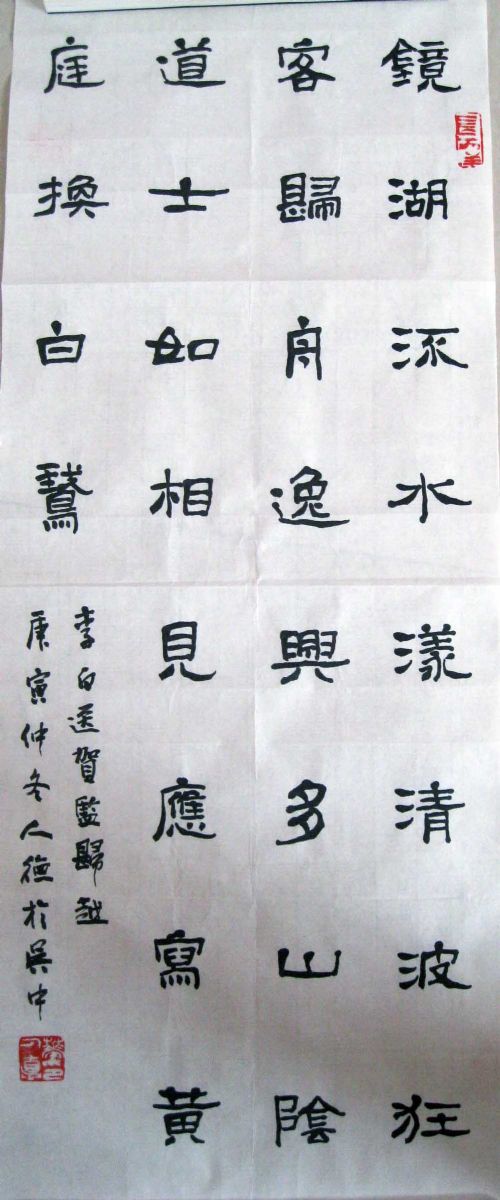 鏡湖流水漾清波狂
客歸舟逸興多山陰
道士如相見應寫黄
庭換白鵞
李白送賀監歸越
庚寅仲冬人德於吳中